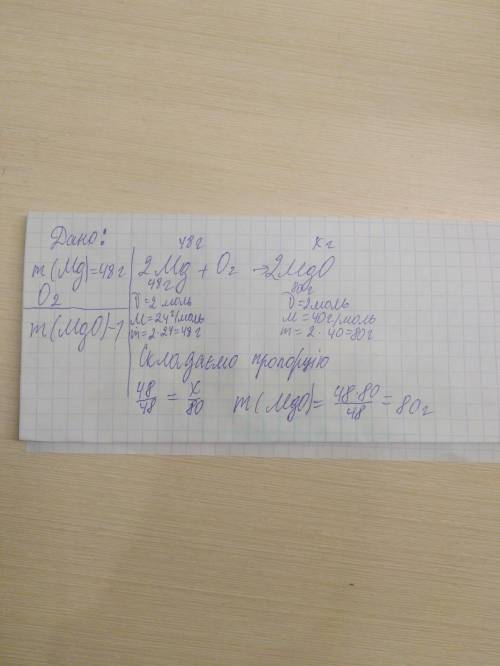 Дано:
48г      xг
m(Mg)=48г | 2Mg + O₂ → 2MgO
O₂      48г      80г
m(MgO)-?
ν=2 моль      ν=2моль
M=24г/моль      M=40г/моль
m=2·24=48г      m=2·40=80г
Складаємо пропорцію
48/48 = x/80      m(MgO)= 48·80/48 = 80г